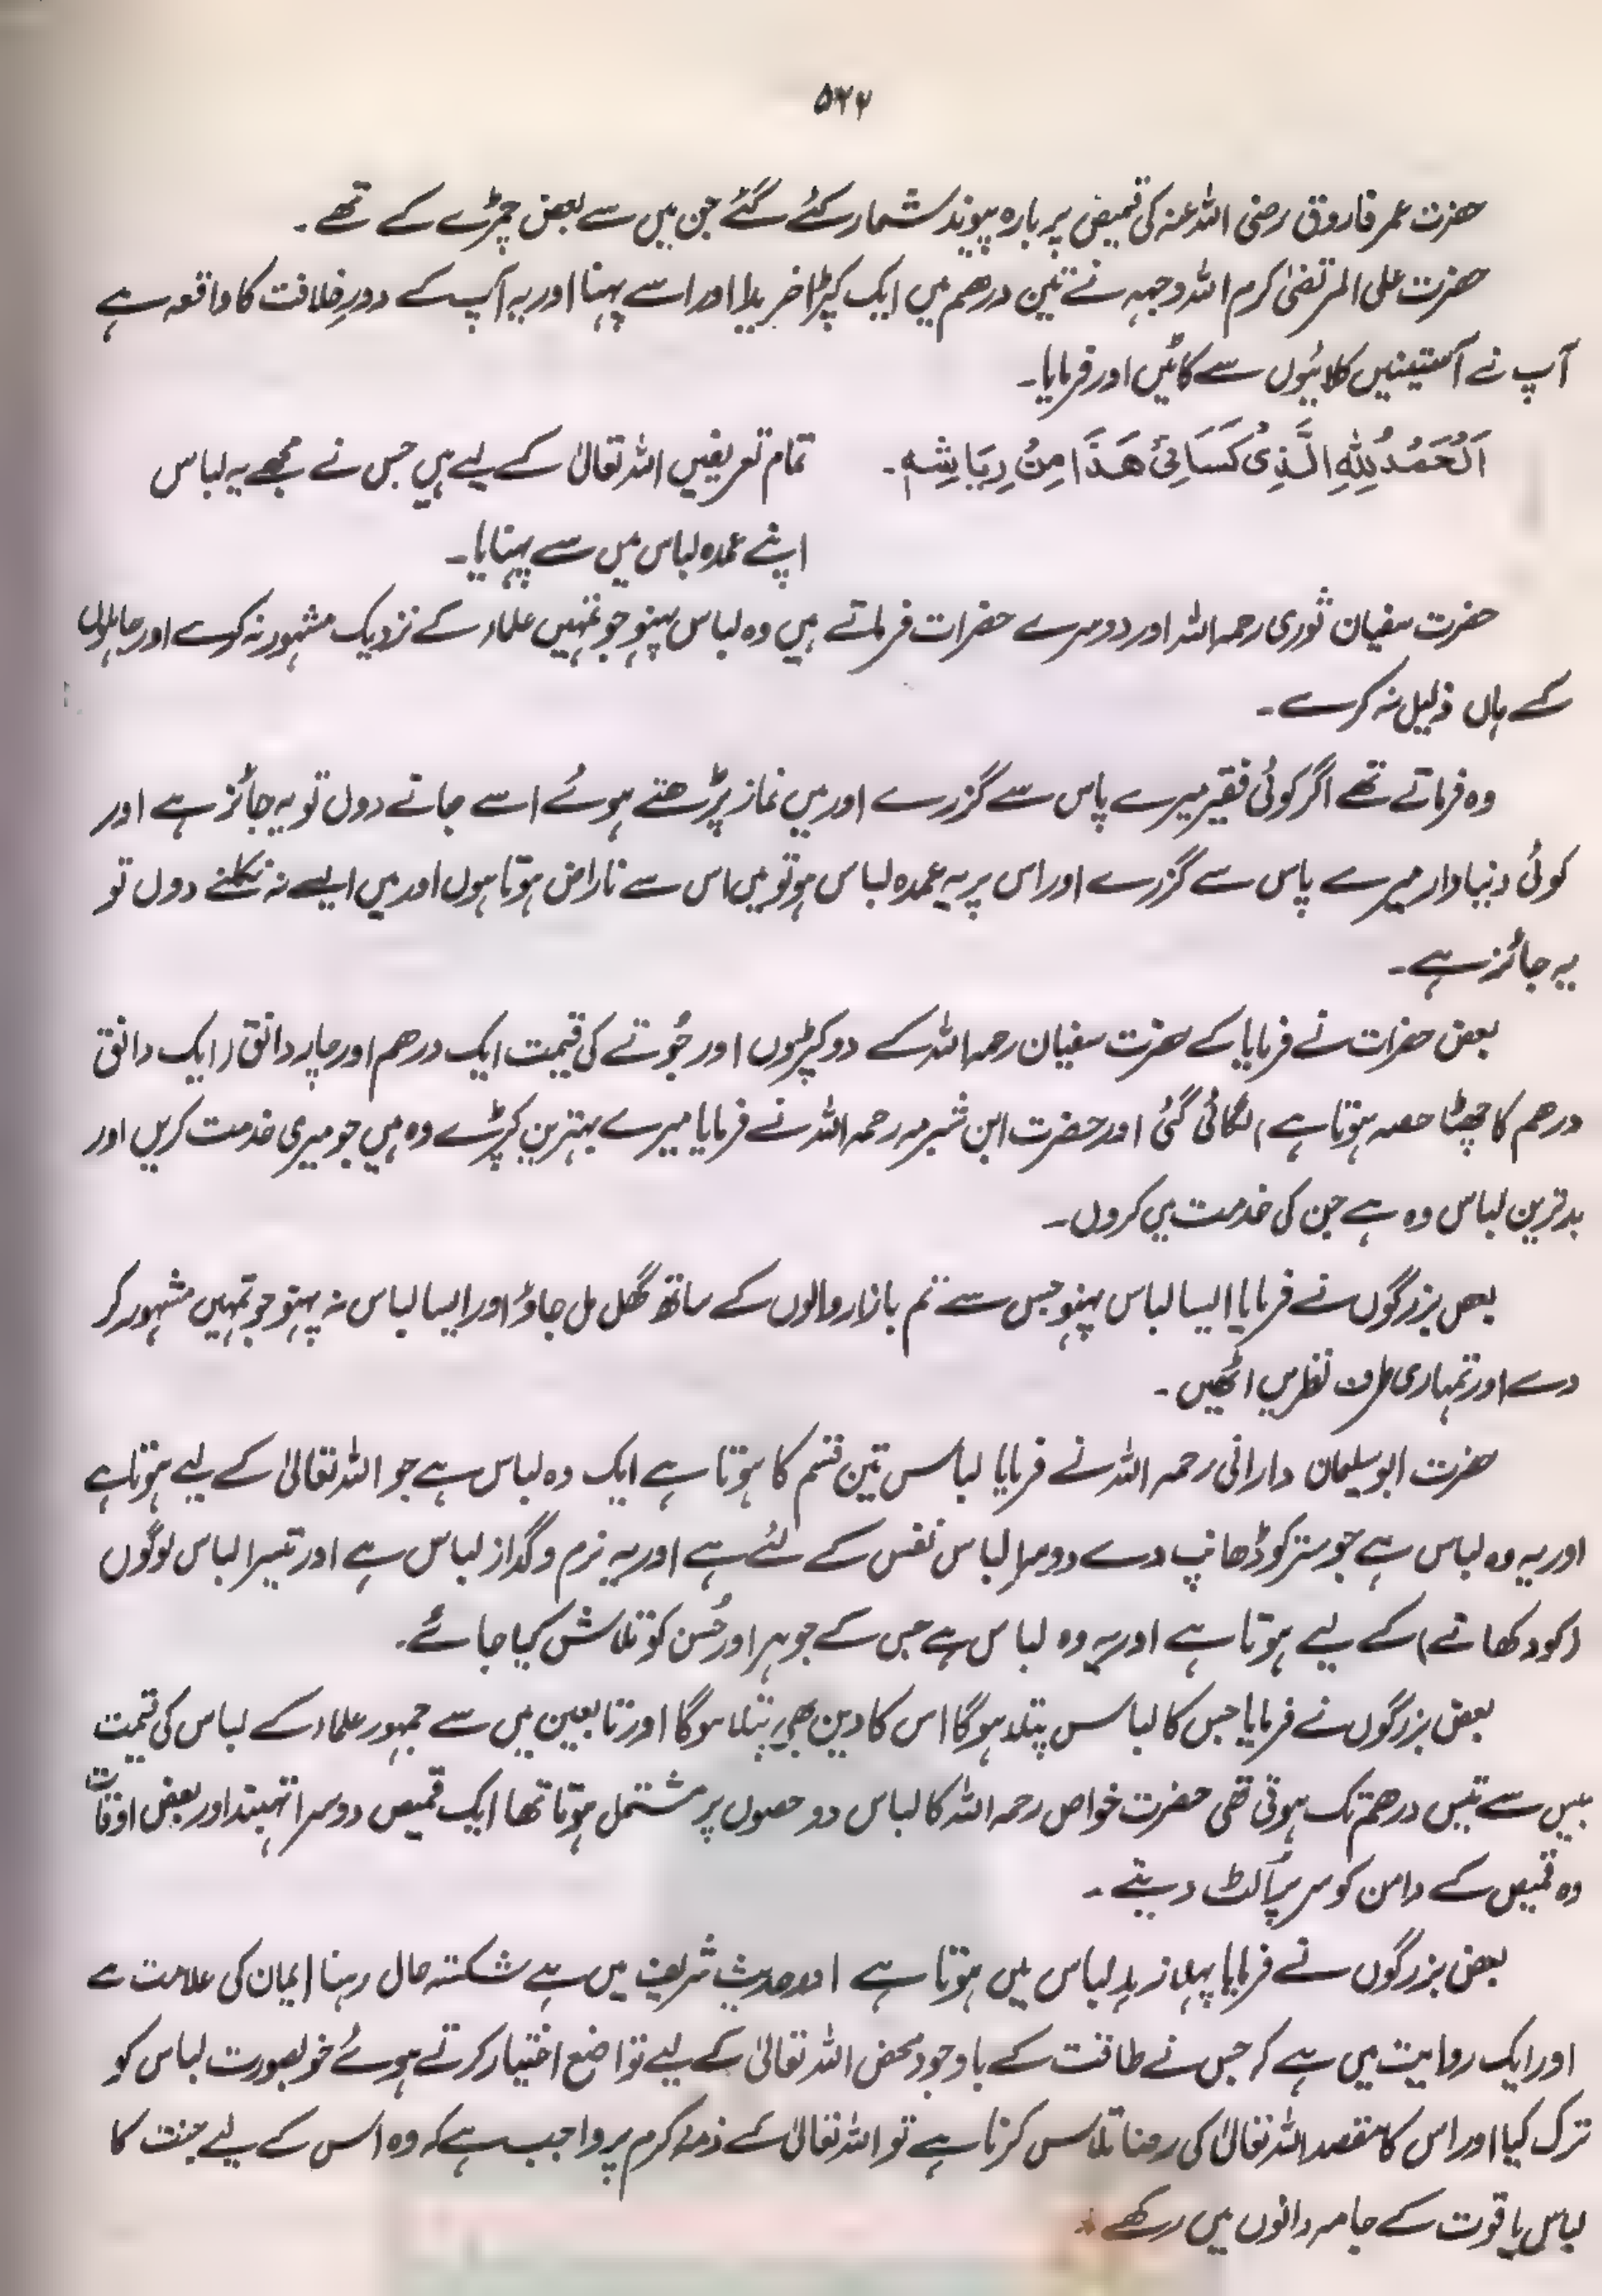 ۵۲۲
حضرت عمر فاروق رضی اللہ عنہ کی قمیض پر بارہ پیوند شمار کئے گئے جن میں سے بعض چمڑے کے تھے۔
حضرت علی المرتضیٰ کرم اللہ وجہہ نے تین درھم میں ایک کپڑا خریدا اور اسے پہنا اور یہ آپ کے دورِ خلافت کا واقعہ ہے
آپ نے آستینیں کلائیوں سے کاٹیں اور فرمایا۔
اَلْحَمْدُ لِلّٰهِ الَّذِیْ كَسَانِیْ هَذَا مِنْ رِیَاشِہٖ۔ تمام تعریفیں اللہ تعالیٰ کے لیے ہیں جس نے مجھے یہ لباس
اپنے عمدہ لباس میں سے پہنایا۔
حضرت سفیان ثوری رحمہ اللہ اور دوسرے حضرات فرماتے ہیں وہ لباس پہنو جو تمہیں علماء کے نزدیک مشہور نہ کرے اور جاہلوں
کے ہاں ذلیل نہ کرے۔
وہ فرماتے تھے اگر کوئی فقیر میرے پاس سے گزرے اور میں نماز پڑھتے ہوئے اسے جانے دوں تو یہ جائز ہے اور
کوئی دنیادار میرے پاس سے گزرے اور اس پر یہ عمدہ لباس ہو تو میں اس سے ناراض ہوتا ہوں اور میں ایسے نہ نکلنے دوں تو
یہ جائز ہے۔
بعض حضرات نے فرمایا کے حضرت سفیان رحمہ اللہ کے دو کپڑوں اور جُوتے کی قیمت ایک درھم اور چار دانق (ایک دانق
درھم کا چھٹا حصہ ہوتا ہے) لگائی گئی اور حضرت ابن شبرمہ رحمہ اللہ نے فرمایا میرے بہترین کپڑے وہ ہیں جو میری خدمت کریں اور
بدترین لباس وہ ہے جن کی خدمت میں کروں۔
بعض بزرگوں نے فرمایا ایسا لباس پہنو جس سے تم بازار والوں کے ساتھ گھل مل جاؤ اور ایسا لباس نہ پہنو جو تمہیں مشہور کر
دے اور تمہاری طرف نظریں اٹھیں۔
حضرت ابو سلیمان دارانی رحمہ اللہ نے فرمایا لباس تین قسم کا ہوتا ہے ایک وہ لباس ہے جو اللہ تعالیٰ کے لیے ہوتا ہے
اور یہ وہ لباس ہے جو ستر کو ڈھانپ دے دوسرا لباس نفس کے لئے ہے اور یہ نرم و گداز لباس ہے اور تیسرا لباس لوگوں
(کو دکھانے) کے لیے ہوتا ہے اور یہ وہ لباس ہے جس کے جوہر اور حُسن کو تلاش کیا جائے۔
بعض بزرگوں نے فرمایا جس کا لباس پتلا ہو گا اس کا دین بھی پتلا ہو گا اور تابعین میں سے جمہور علماء کے لباس کی قیمت
بیس سے تیس درھم تک ہوتی تھی حضرت خواص رحمہ اللہ کا لباس دو حصوں پر مشتمل ہوتا تھا ایک قمیص دوسرا تہبند اور بعض اوقات
وہ قمیص کے دامن کو سر پر اُلٹ دیتے۔
بعض بزرگوں نے فرمایا پہلا زہد لباس میں ہوتا ہے اور حدیث شریف میں ہے شکستہ حال رہنا ایمان کی علامت ہے
اور ایک روایت میں ہے کہ جس نے طاقت کے باوجود محض اللہ تعالیٰ کے لیے تواضع اختیار کرتے ہوئے خوبصورت لباس کو
ترک کیا اور اس کا مقصد اللہ تعالیٰ کی رضا تلاش کرنا ہے تو اللہ تعالیٰ کے ذمۂ کرم پر واجب ہے کہ وہ اس کے لیے جنت کا
لباس یاقوت کے جامہ دانوں میں رکھے